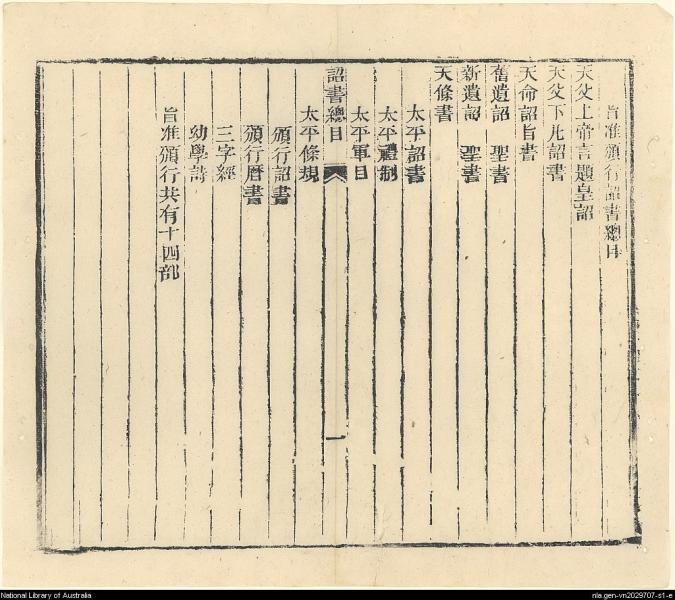 旨准頒行詔書總目
天父上帝言題皇詔
天父下凡詔書
天命詔旨書
舊遺詔 聖書
新遺詔 聖書
天條書
太平詔書
太平禮制
太平軍目
詔書總目
一
太平條規
頒行詔書
頒行曆書
三字經
幼學詩
旨准頒行共有十四部
National Library of Australia
nla.gen-vn2029707-s1-e